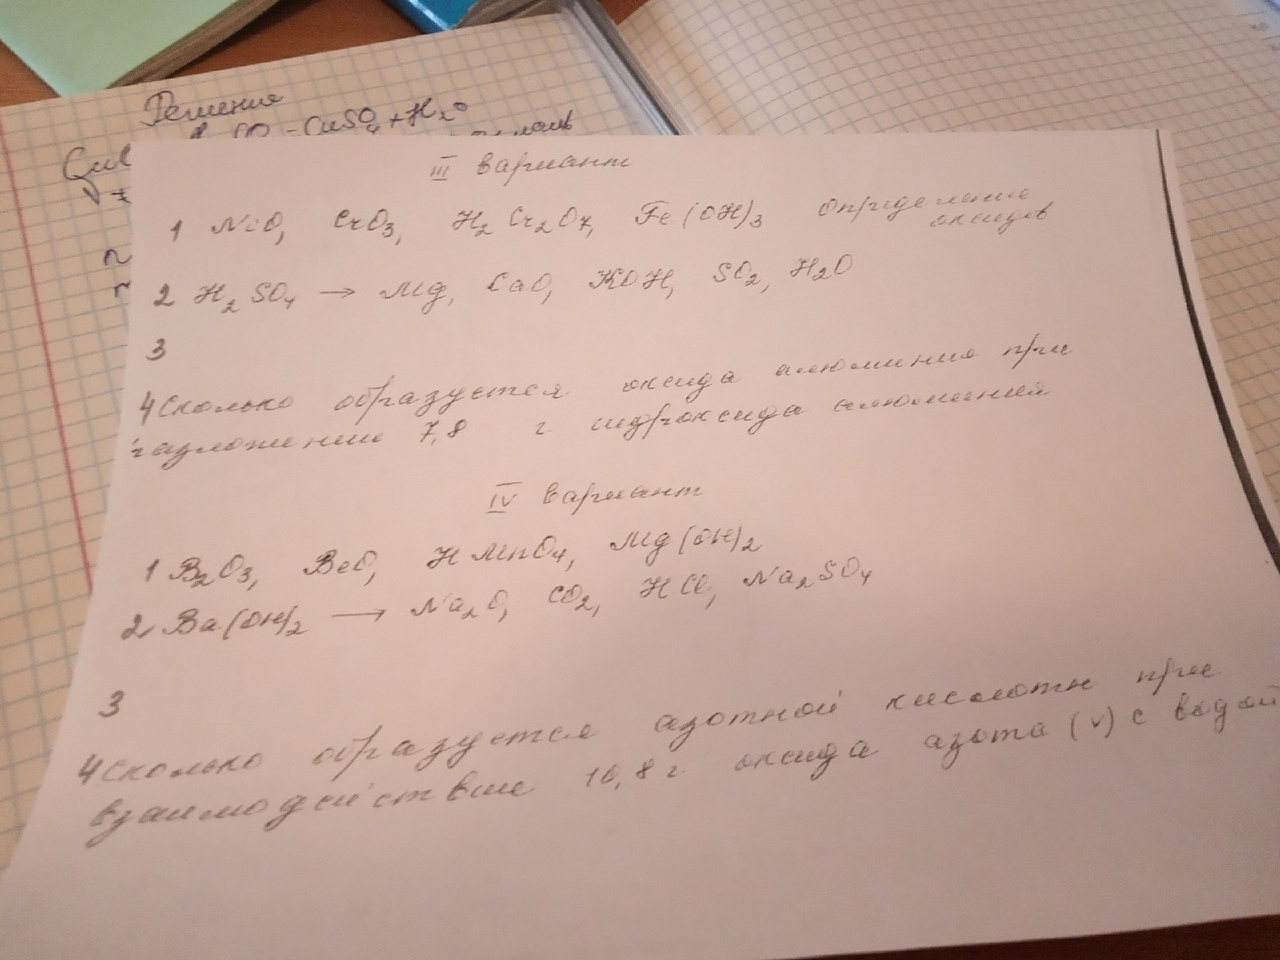 Решение
= CuSO₄ + H₂O
III вариант
1 NiO, CrO₃, H₂Cr₂O₇, Fe(OH)₃ определение
оксидов
2 H₂SO₄ → Mg, CaO, KOH, SO₂, H₂O
3
4 Сколько образуется оксида алюминия при
разложении 7,8 г гидроксида алюминия
IV вариант
1 B₂O₃, BeO, HMnO₄, Mg(OH)₂
2 Ba(OH)₂ → Na₂O, CO₂, HCl, Na₂SO₄
3
4 Сколько образуется азотной кислоты при
взаимодействие 10,8 г оксида азота (v) с водой